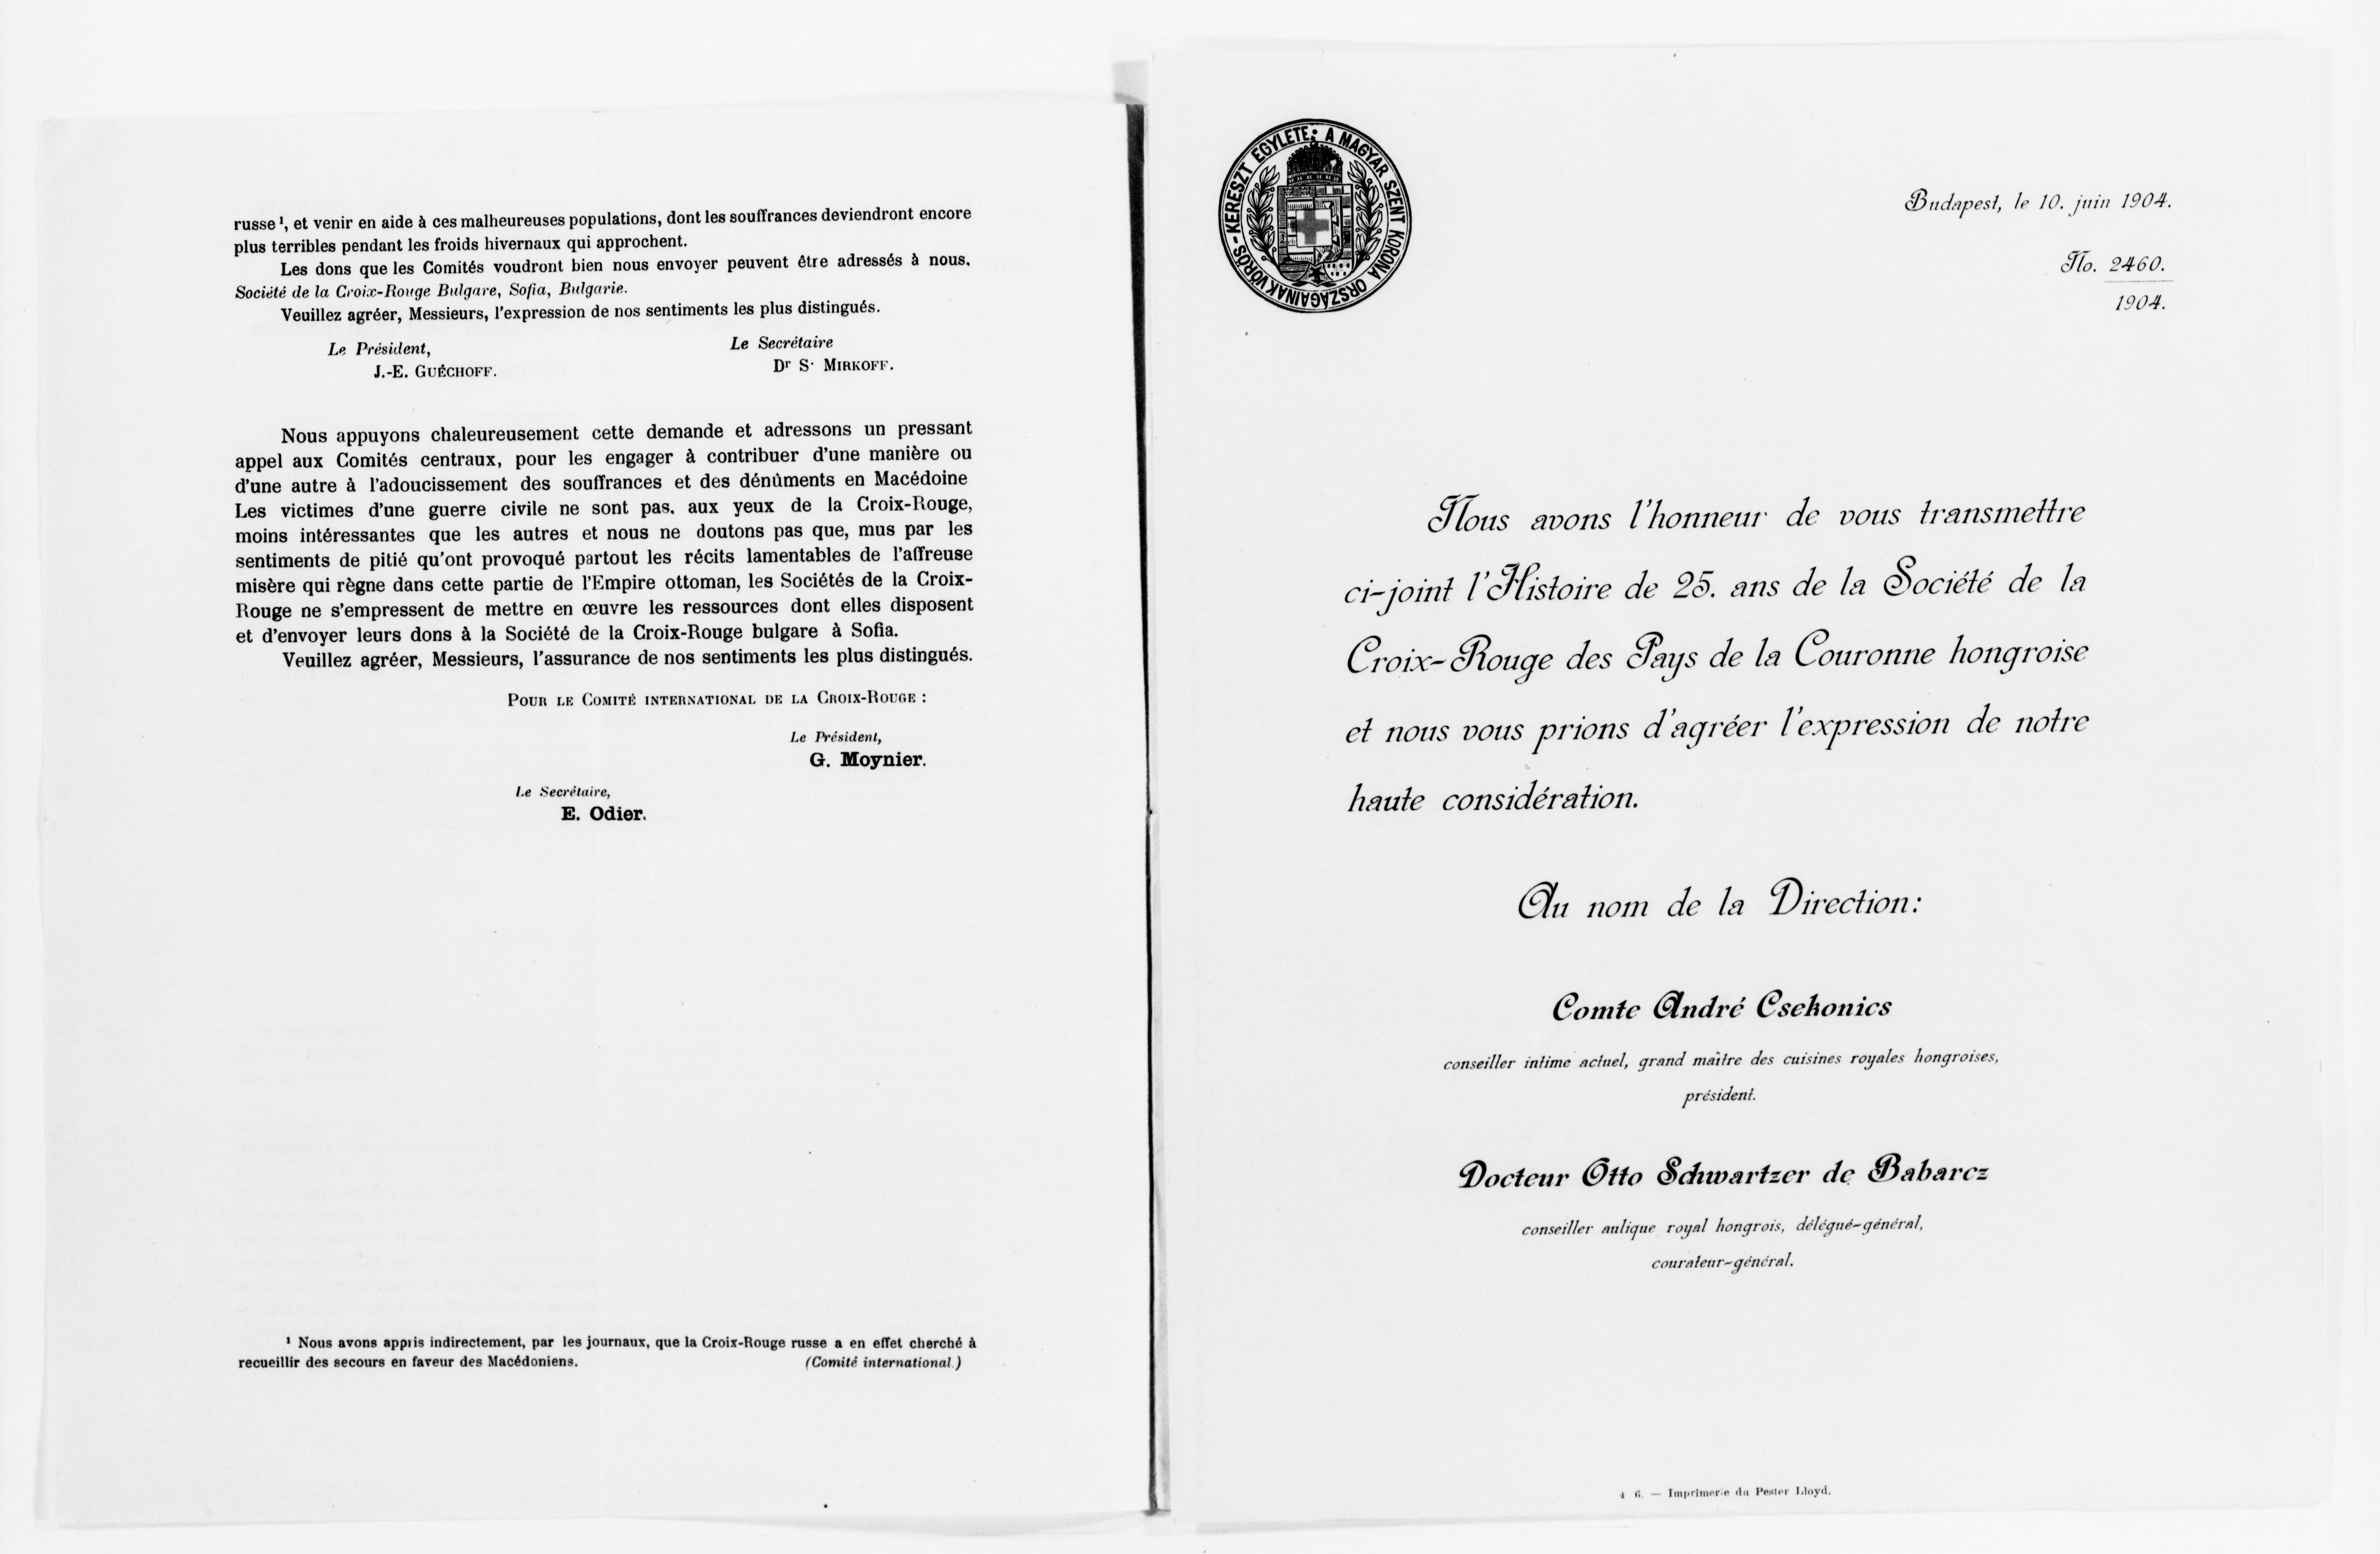 russe ¹, et venir en aide à ces malheureuses populations, dont les souffrances deviendront encore
plus terribles pendant les froids hivernaux qui approchent.
Les dons que les Comités voudront bien nous envoyer peuvent être adressés à nous.
Société de la Croix-Rouge Bulgare, Sofia, Bulgarie.
Veuillez agréer, Messieurs, l'expression de nos sentiments les plus distingués.
Le Président,
J.-E. GUÉCHOFF.
Le Secrétaire
Dr S. MIRKOFF.
Nous appuyons chaleureusement cette demande et adressons un pressant
appel aux Comités centraux, pour les engager à contribuer d'une manière ou
d'une autre à l'adoucissement des souffrances et des dénûments en Macédoine
Les victimes d'une guerre civile ne sont pas. aux yeux de la Croix-Rouge,
moins intéressantes que les autres et nous ne doutons pas que, mus par les
sentiments de pitié qu'ont provoqué partout les récits lamentables de l'affreuse
misère qui règne dans cette partie de l'Empire ottoman, les Sociétés de la Croix-
Rouge ne s'empressent de mettre en œuvre les ressources dont elles disposent
et d'envoyer leurs dons à la Société de la Croix-Rouge bulgare à Sofia.
Veuillez agréer, Messieurs, l'assurance de nos sentiments les plus distingués.
POUR LE COMITÉ INTERNATIONAL DE LA CROIX-ROUGE :
Le Président,
G. Moynier.
Le Secrétaire,
E. Odier.
¹ Nous avons appris indirectement, par les journaux, que la Croix-Rouge russe a en effet cherché à
recueillir des secours en faveur des Macédoniens. (Comité international.)
A MAGYAR SZENT KORONA ORSZÁGAINAK VÖRÖS-KERESZT EGYLETE
Budapest, le 10. juin 1904.
No. 2460.
1904.
Nous avons l'honneur de vous transmettre
ci-joint l'Histoire de 25. ans de la Société de la
Croix-Rouge des Pays de la Couronne hongroise
et nous vous prions d'agréer l'expression de notre
haute considération.
Au nom de la Direction:
Comte André Csekonics
conseiller intime actuel, grand maître des cuisines royales hongroises,
président.
Docteur Otto Schwartzer de Babarcz
conseiller aulique royal hongrois, délégué-général,
courateur-général.
4 6. — Imprimerie du Pester Lloyd.